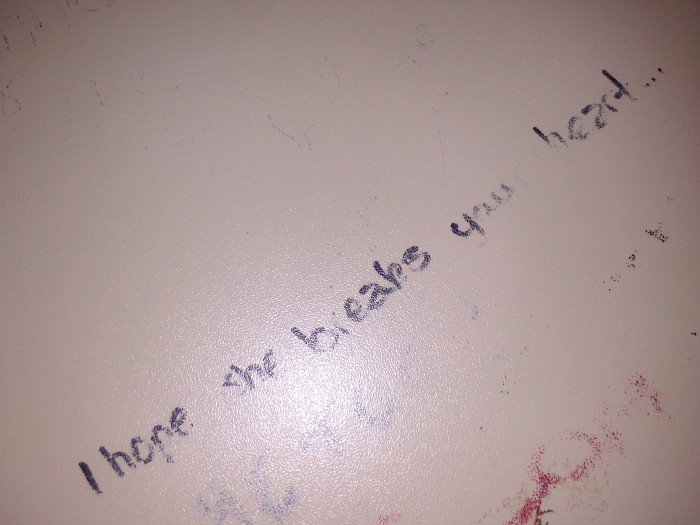 I hope she breaks your heart...